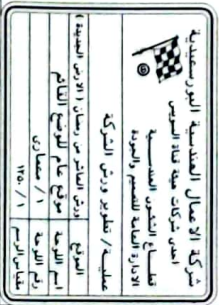 شركة الاعمال الهندسية البورسعيدية
احدى شركات هيئة قناة السويس
قطاع الشئون الهندسية
الادارة العامة للتصميم والجودة
عملية / تطوير ورش الشركة
الموقع ورش العاشر من رمضان ( الارض الجديدة )
اسم اللوحة موقع عام للوضع القائم
رقم اللوحة ١ / معمارى
مقياس الرسم ١ / ١٢٥٠